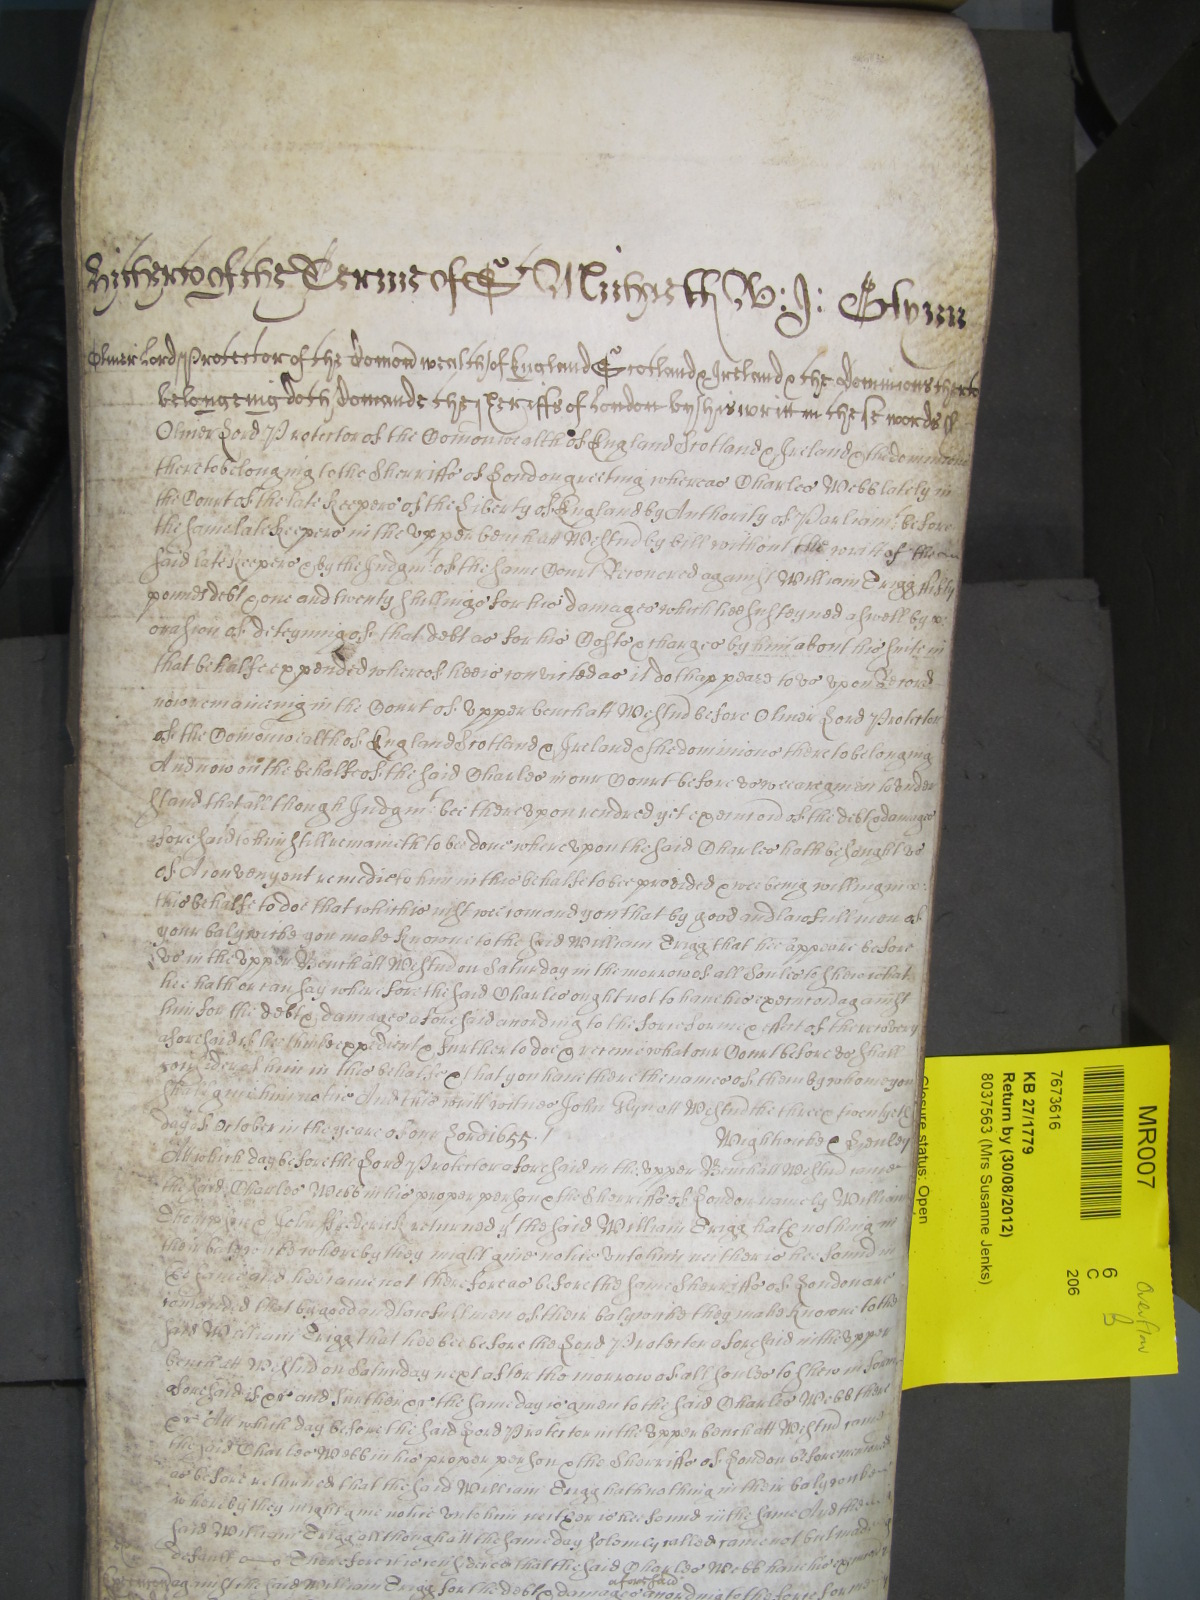 Hitherto of the Terme of St Michaeth W: J: Glynn
Oliver Lord Protector of the Comon wealth of England Scotland & Ireland & the Dominions therto
belongeing doth Comande the Sheriffs of London by his writt in these words ss
Oliver Lord Protector of the Comonwealth of England Scotland & Ireland & the dominions
thereto belonging to the Sherriffs of London greeting whereas Charles Webb lately in
the Court of the late keepers of the Liberty of England by Authority of Parliamt: before
the same late keepers in the upper bench att Westmr by bill without the writt of the
said late keepers & by the Judgmt: of the same Court Recovered against William Trigg fifty
pounds debt & one and twenty shillings for his damages which hee susteyned aswell by
ocasion of deteyning of that debt as for his Costs & charges by him about his suite in
that behalfe expended whereof hee is convicted as it doth appeare to us upon Record
now remaineing in the Court of upper bench att Westmr before Oliver Lord Protector
of the Comonwealth of England Scotland & Ireland & the dominions thereto belonging
And now on the behalfe of the said Charles in our Court before us wee are given to under
stand that all though Judgmt: bee thereupon rendred yet execucon of the debt & damages
aforesaid to him still remaineth to bee done whereupon the said Charles hath besought us
of A convenyent remedie to him in this behalfe to bee provided & wee being willing in
this behalfe to doe that which is iust wee comand you that by good and lawfull men of
your balywicke you make knowne to the said William Trigg that hee appeare before
us in the upper Bench att Westmr on Saturday in the morrow of all Soules to shew what
hee hath or can say wherefore the said Charles ought not to have his execucon against
him for the debt & damages aforesaid according to the force forme & effect of the recovery
aforesaid if hee thinks expedient & further to doe & receive what our Court before us shall
consider of him in this behalfe & that you have there the names of them by whome you
shall give him notice And this writt witnes John Glyn att Westmr the three & twentyeth
day of October in the yeare of our Lord 1655. Wightwicke &
At which day before the Lord Protector aforesaid in the upper Bench att Westmr came
the said Charles Webb in his proper person & the Sherriffs of London namely William
Thompson & John Frederick returned yt the said William Trigg hath nothing in
their balywicke whereby they might give notice unto him neither is hee found in
the same and hee came not therefore as before the same Sherriffs of London are
comanded that by good and lawfull men of their balywicke they make knowne to the
said William Trigg that hee bee before the Lord Protector aforesaid in the upper
bench att Westmr on Saturday next after the morrow of all Soules to shew in forme
aforesaid if &c and further &c the same day is given to the said Charles Webb there
&c At which day before the said Lord Protector in the upper bench att Westmr came
the said Charles Webb in his proper person & the Sherriffs of London before mencioned
as before returned that the said William Trigg hath nothing in their balywicke
whereby they might give notice unto him neither is hee found in the same And the
said William Trigg although att the same day solemly called came not but made
default Therefore it is considered that the said Charles Webb have his execucon
against the said William Trigg for the debt & damages aforesaid according to the force forme
MR007
6
C
206
Overflow
7673616
KB 27/1779
Return by (30/08/2012)
8037563 (Mrs Susanne Jenks)
Closure status: Open